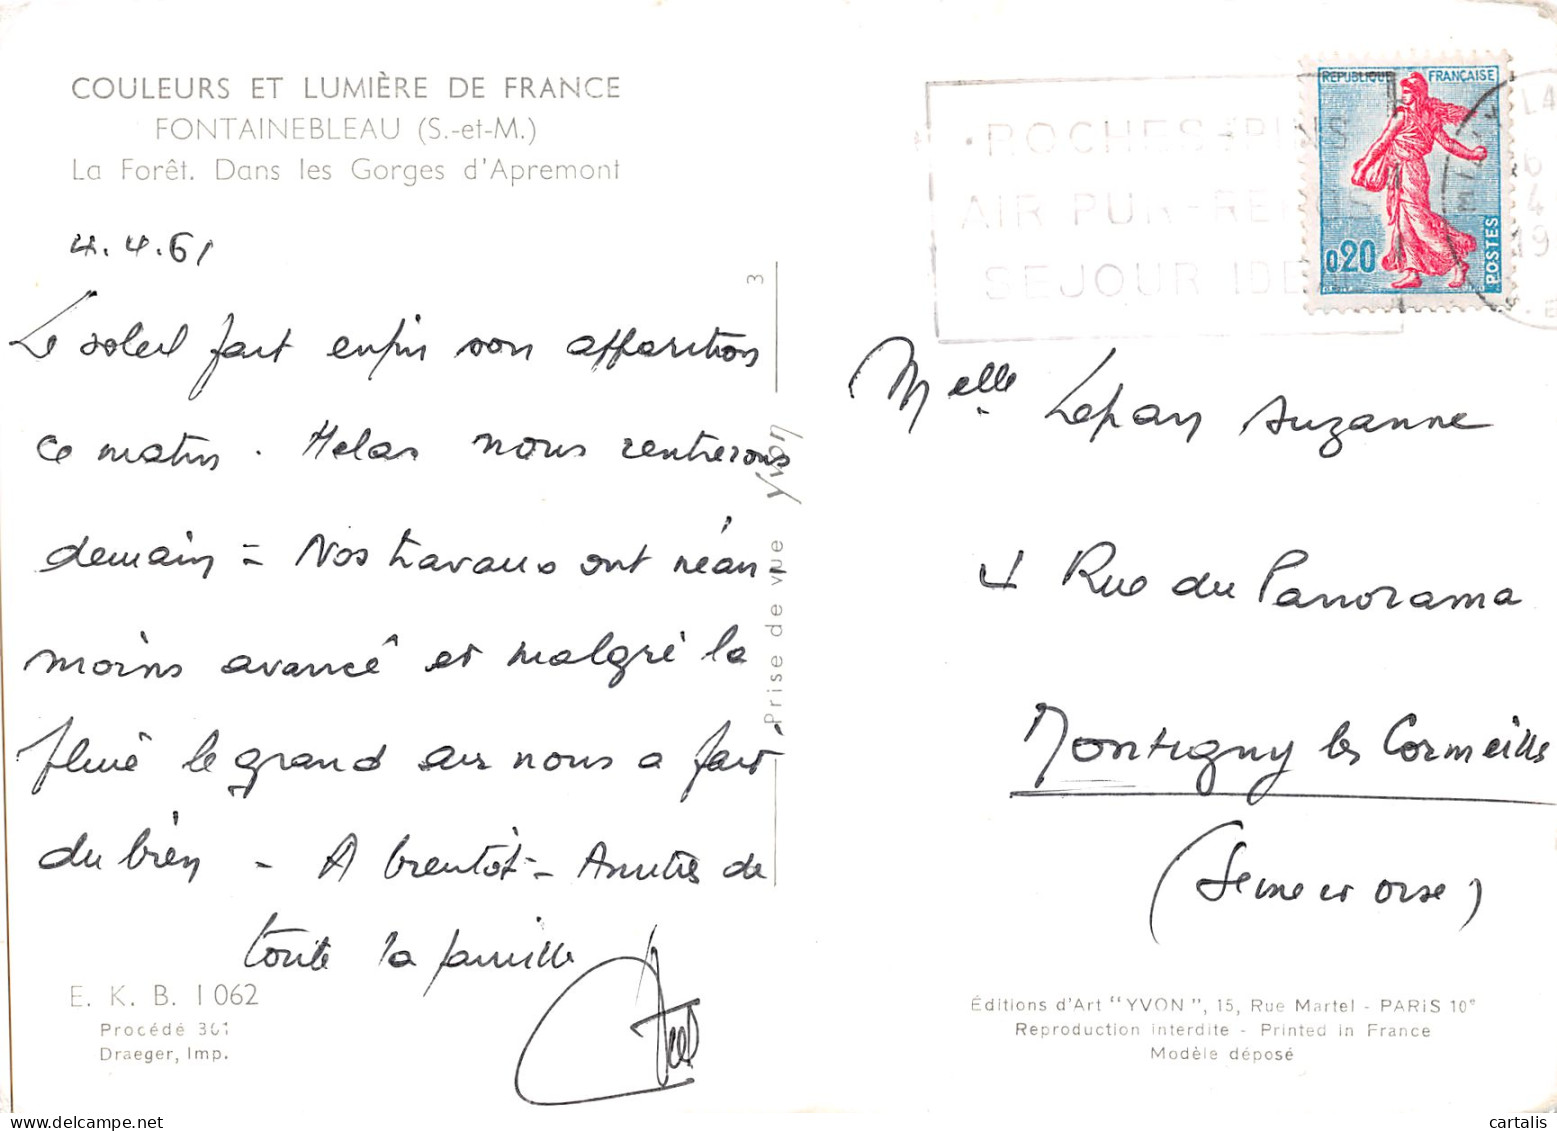 COULEURS ET LUMIÈRE DE FRANCE
FONTAINEBLEAU (S.-et-M.)
La Forêt. Dans les Gorges d'Apremont
4.4.61
Le soleil fait enfin son apparition
ce matin. Helas nous rentrerons
demain = Nos travaux ont néan-
moins avancé et malgré la
pluie le grand air nous a fait
du bien - A bientôt - Amitiés de
toute la famille
E. K. B. 1062
Procédé 301
Draeger, Imp.
3
Prise de vue Yvon
ROCHES-PINS
AIR PUR-RE
SEJOUR IDE
REPUBLIQUE FRANÇAISE
0,20
POSTES
MILLY
LA
6
4
19
Melle Lepan Suzanne
4 Rue du Panorama
Montigny les Cormeilles
(Seine et oise)
Éditions d'Art "YVON", 15, Rue Martel - PARIS 10e
Reproduction interdite - Printed in France
Modèle déposé
cartalis